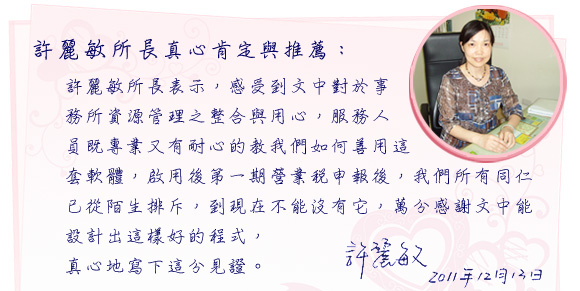 許麗敏所長真心肯定與推薦：
許麗敏所長表示，感受到文中對於事
務所資源管理之整合與用心，服務人
員既專業又有耐心的教我們如何善用這
套軟體，啟用後第一期營業稅申報後，我們所有同仁
已從陌生排斥，到現在不能沒有它，萬分感謝文中能
設計出這樣好的程式，
真心地寫下這分見證。
許麗敏
2011年12月13日